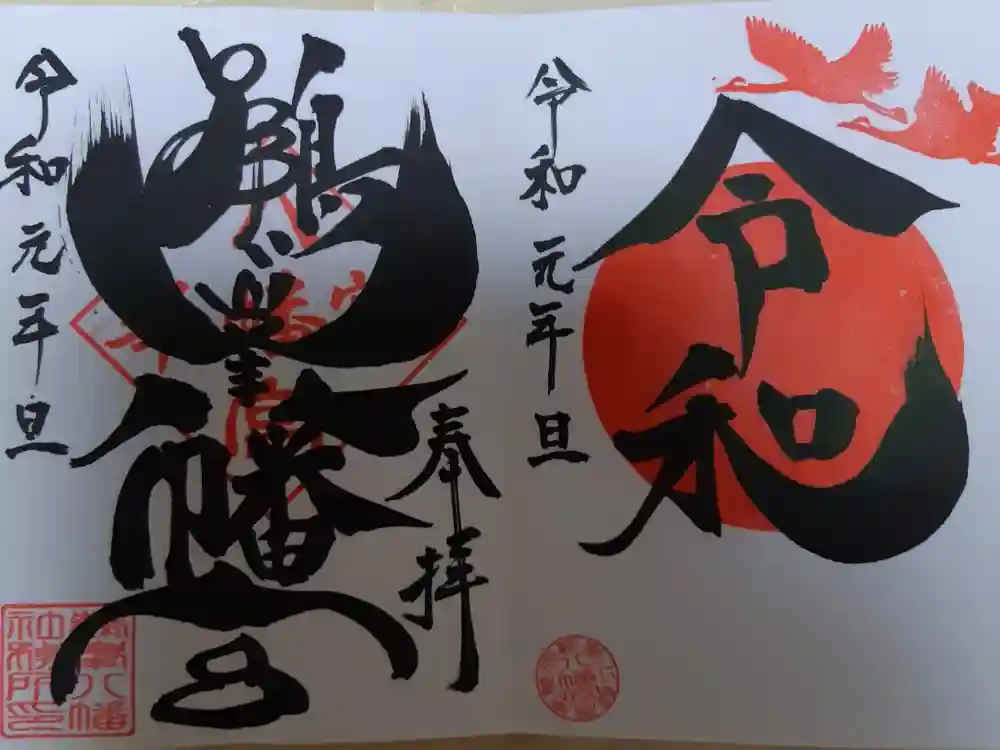 令和
令和元年旦
奉拝
鶴峯八幡宮
令和元年旦